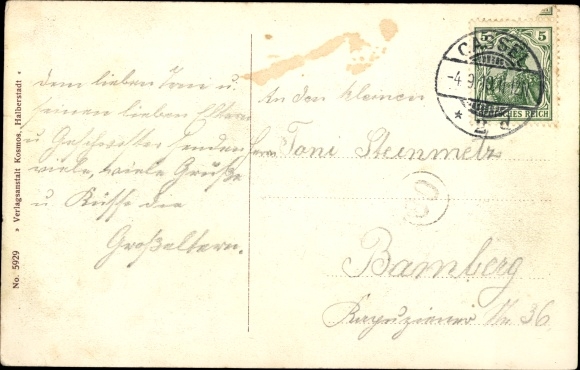 Dem lieben Toni u.
seinen lieben Eltern
u Geschwister senden
viele, viele Grüße
u Küsse die
Großeltern.
An den kleinen
Herrn Toni Steinmetz
Bamberg
Kapuziner Str 36
CASSEL
-4.9.
* 2 d
5
5
DEUTSCHES REICH
No. 5929 » Verlagsanstalt Kosmos, Halberstadt «